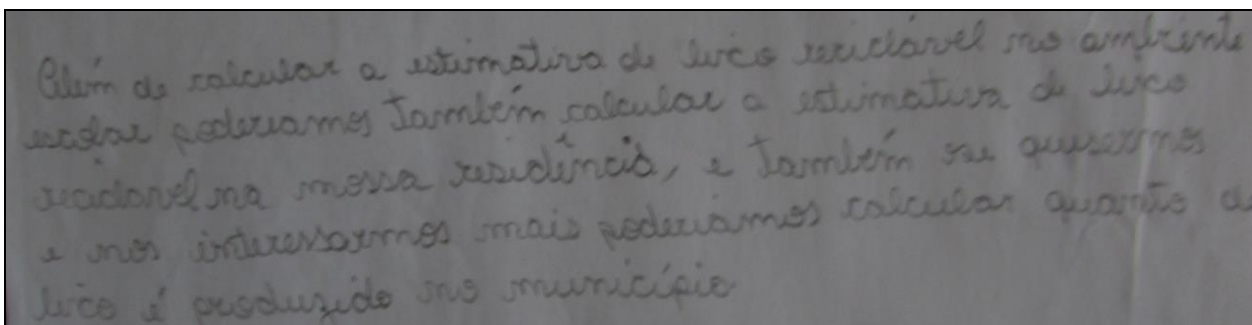 Além de calcular a estimativa de lixo reciclável no ambiente
escolar poderiamos também calcular a estimativa de lixo
reciclavel na nossa residência, e também se quisermos
e nos interessarmos mais poderiamos calcular quanto de
lixo é produzido no município